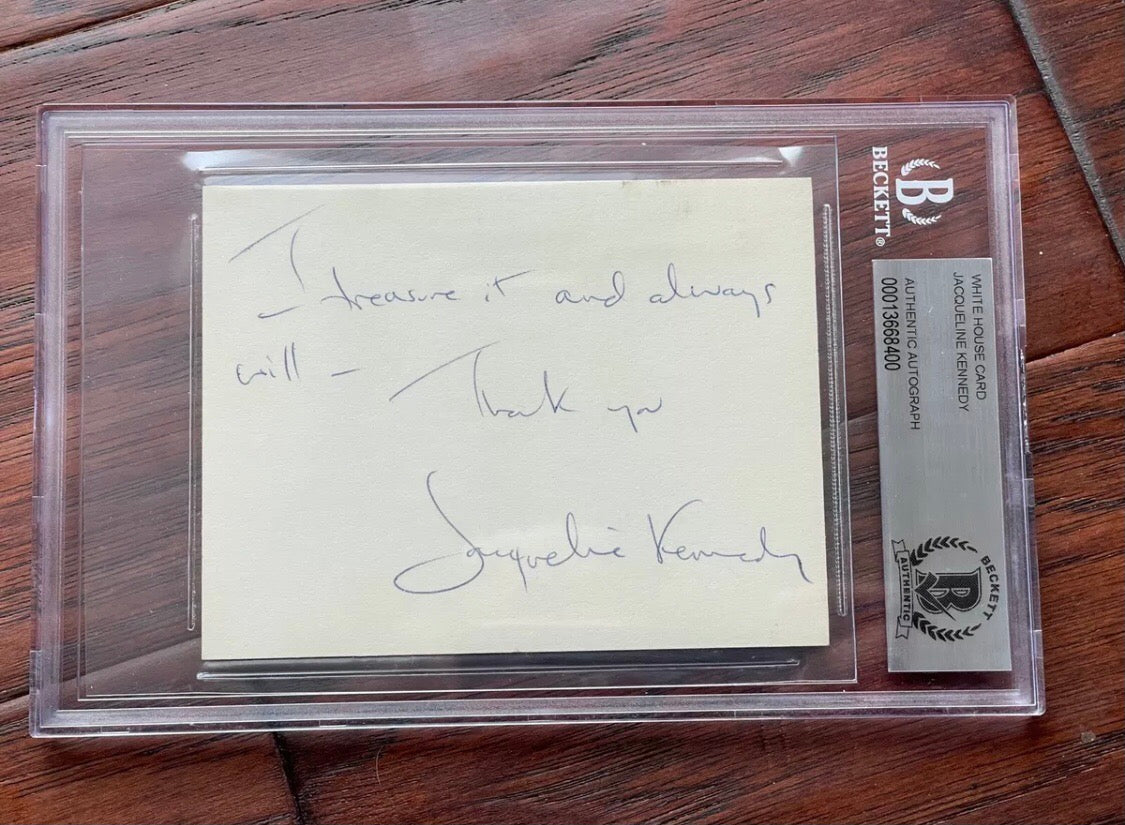 I treasure it and always
will – Thank you
Jacqueline Kennedy
B
BECKETT®
WHITE HOUSE CARD
JACQUELINE KENNEDY
AUTHENTIC AUTOGRAPH
00013668400
BECKETT
B
AUTHENTIC